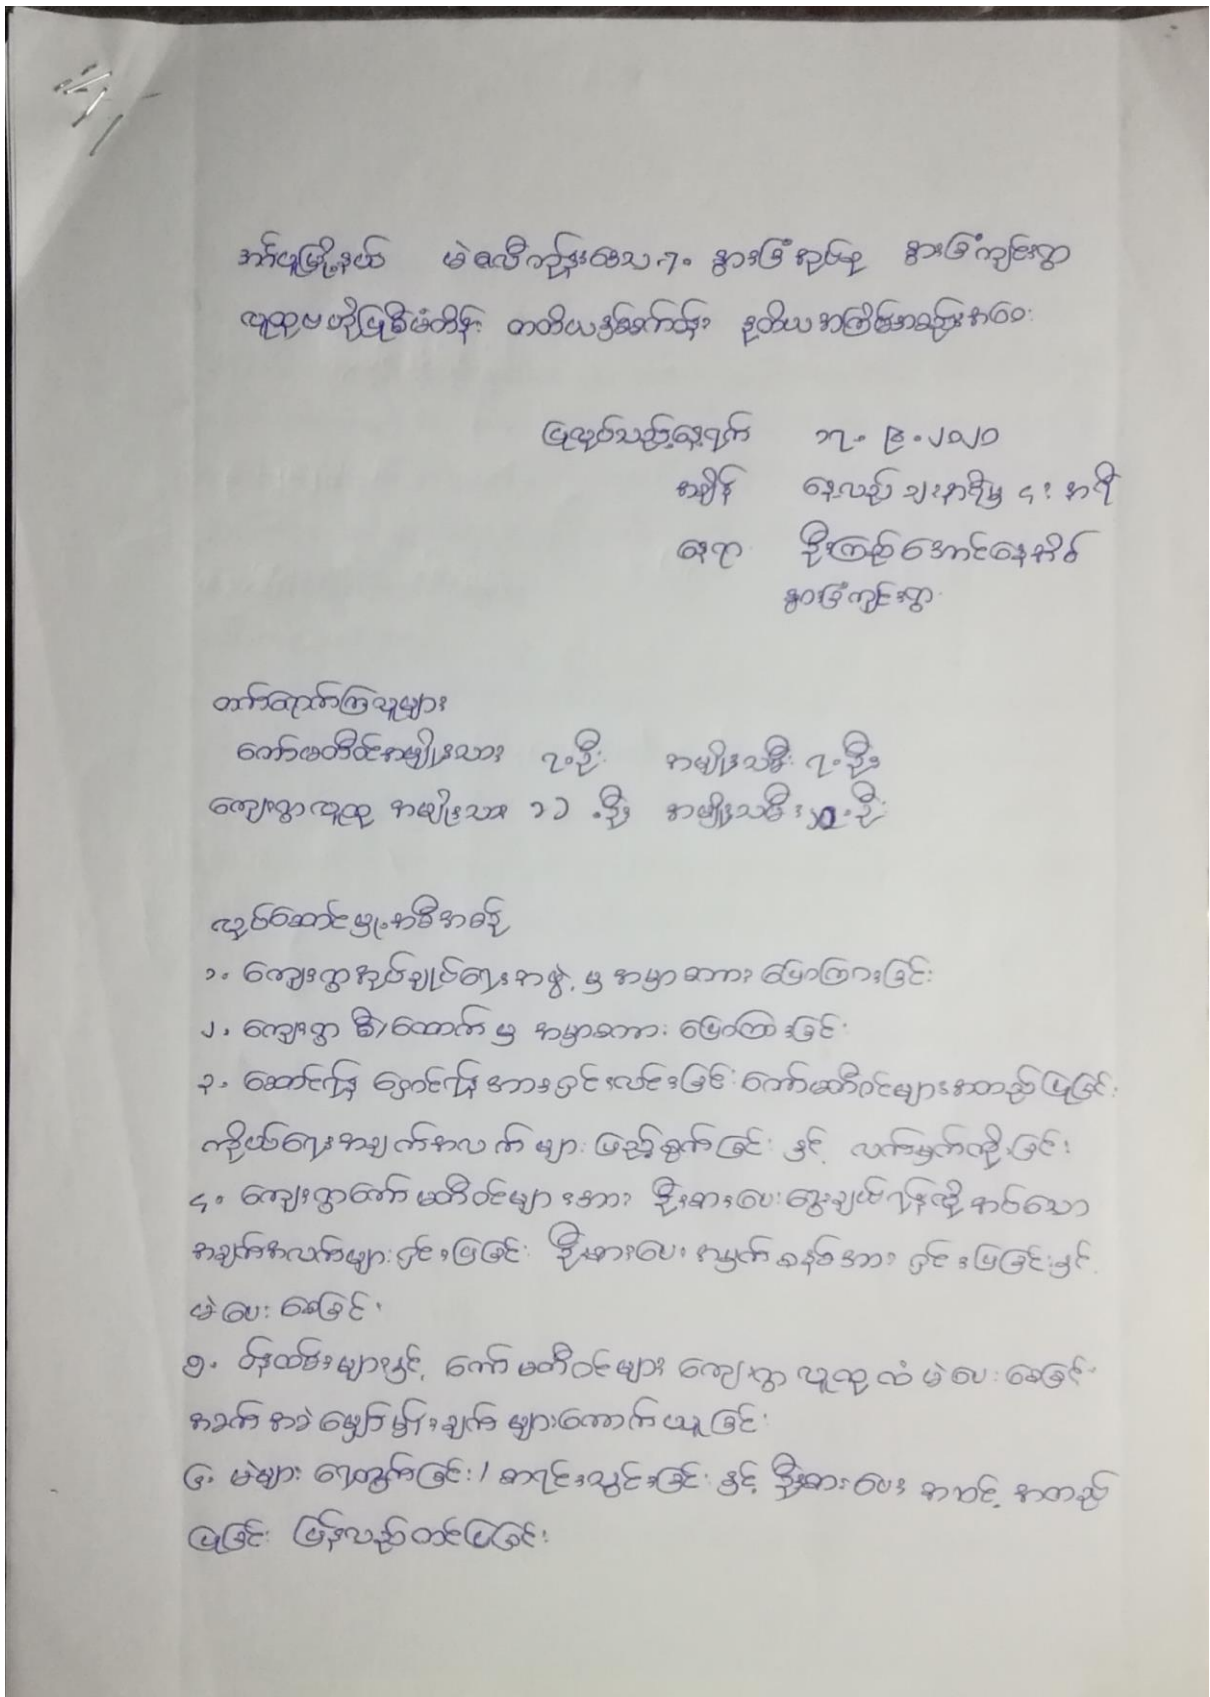 အင်ပူမြို့နယ် မဲဇလီကုန်းဒေသ ၇. နွားခြံအုပ်စု နွားခြံကျင်းရွာ
လူထုဗဟိုပြုစီမံကိန်း တတိယနှစ်စက်ဝန်း ဒုတိယအကြိမ်အစည်းအဝေး
ပြုလုပ်သည့်နေ့ရက် ၁၇.၉.၂၀၂၀
အချိန် နေ့လည် ၁၂းနာရီမှ ၄း နာရီ
နေရာ ဦးကြည်အောင်နေအိမ်
နွားခြံကျင်းရွာ
တက်ရောက်ကြသူများ
ကော်မတီဝင်အမျိုးသား ၇.ဦး အမျိုးသမီး ၇.ဦး
ကျေးရွာလူထု အမျိုးသား ၁၁.ဦး အမျိုးသမီး
လုပ်ဆောင်မှုအစီအစဉ်
၁. ကျေးရွာအုပ်ချုပ်ရေးအဖွဲ့မှ အမှာစကားပြောကြားခြင်း
၂. ကျေးရွာ စီ/ထောက်မှ အမှာစကားပြောကြားခြင်း
၃. ဆောင်ရန် ရှောင်ရန်အားရှင်းလင်းခြင်း ကော်မတီဝင်များအတည်ပြုခြင်း
ကိုယ်ရေးအချက်အလက်များ ဖြည့်စွက်ခြင်း နှင့် လက်မှတ်ထိုးခြင်း
၄. ကျေးရွာကော်မတီဝင်များအား ဦးစားပေးရွေးချယ်ရန်လိုအပ်သော
အချက်အလက်များရှင်းပြခြင်း ဦးစားပေး အမှတ်စနစ်အား ရှင်းပြခြင်းနှင့်
မဲပေးစေခြင်း
၅. ဝန်ထမ်းများနှင့် ကော်မတီဝင်များ ကျေးရွာလူထုထံ မဲပေးစေခြင်း
အခက်အခဲမျှော်မှန်းချက်များကောက်ယူခြင်း
၆. မဲများ ရေတွက်ခြင်း/စာရင်းသွင်းခြင်း နှင့် ဦးစားပေးအဆင့်အတည်
ပြုခြင်း ပြန်လည်တင်ပြခြင်း